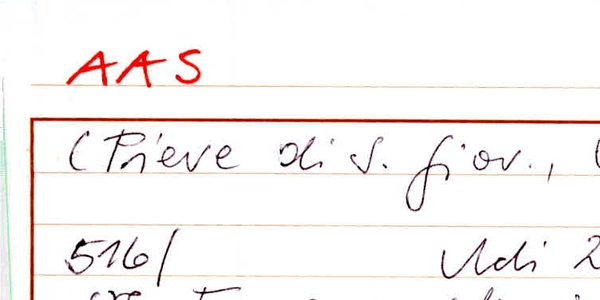 AAS
(Pieve di S. Giov., (
516/ Udi 2